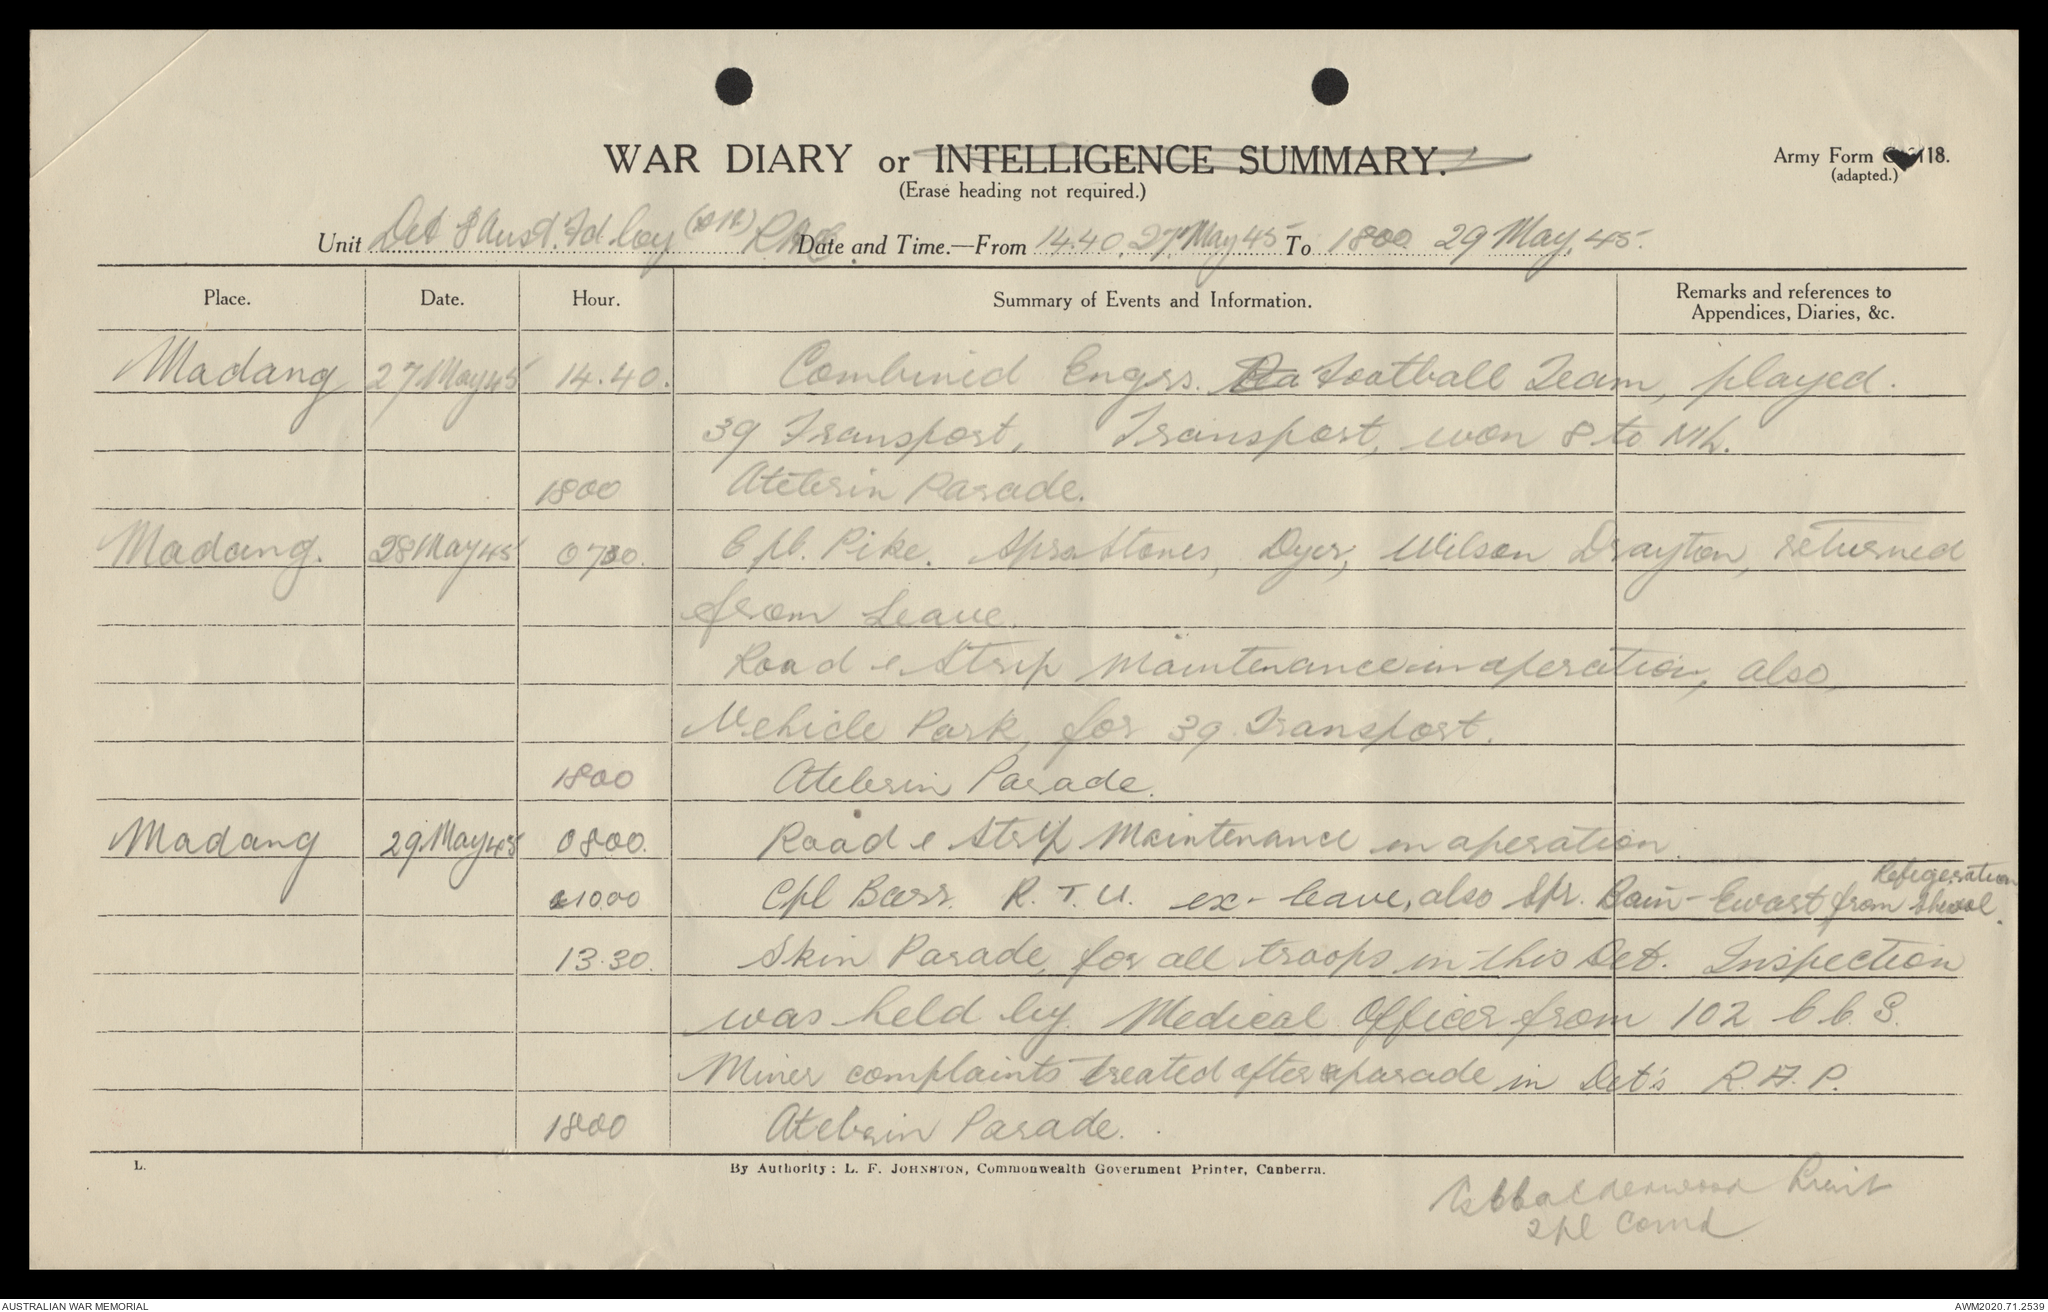 WAR DIARY or INTELLIGENCE SUMMARY.
(Erase heading not required.)
Army Form 118.
(adapted.)
Unit Det 8 Aust. Fd. Coy (AIF) RAE. Date and Time.—From 14.40, 27 May 45 To 1800 29 May, 45.
Place. Date. Hour. Summary of Events and Information. Remarks and references to
Appendices, Diaries, &c.
Madang 27 May 45 14.40. Combined Engrs. Football Team, played.
39 Transport, Transport, won 8 to Nil.
1800 Atebrin Parade.
Madang. 28 May 45 0730. Cpl. Pike. Sprs Stones, Dyer, Wilson Drayton, returned
from Leave.
Road & Strip Maintenance in operation, also,
Vehicle Park, for 39 Transport.
1800 Atebrin Parade.
Madang 29 May 45 0800. Road & Strip Maintenance in operation.
1000 Cpl Barr. R.T.U. ex-leave, also Spr. Bain-Ewart from Refigeration Shcool.
13.30. Skin Parade, for all troops in this Det. Inspection
was held by Medical Officer from 102 C.C.S.
Miner complaints treated after parade in Det's R.A.P.
1800 Atebrin Parade.
L.
By Authority: L. F. JOHNSTON, Commonwealth Government Printer, Canberra.
Calderwood Lieut
2 pl Comd
AUSTRALIAN WAR MEMORIAL
AWM2020.71.2539